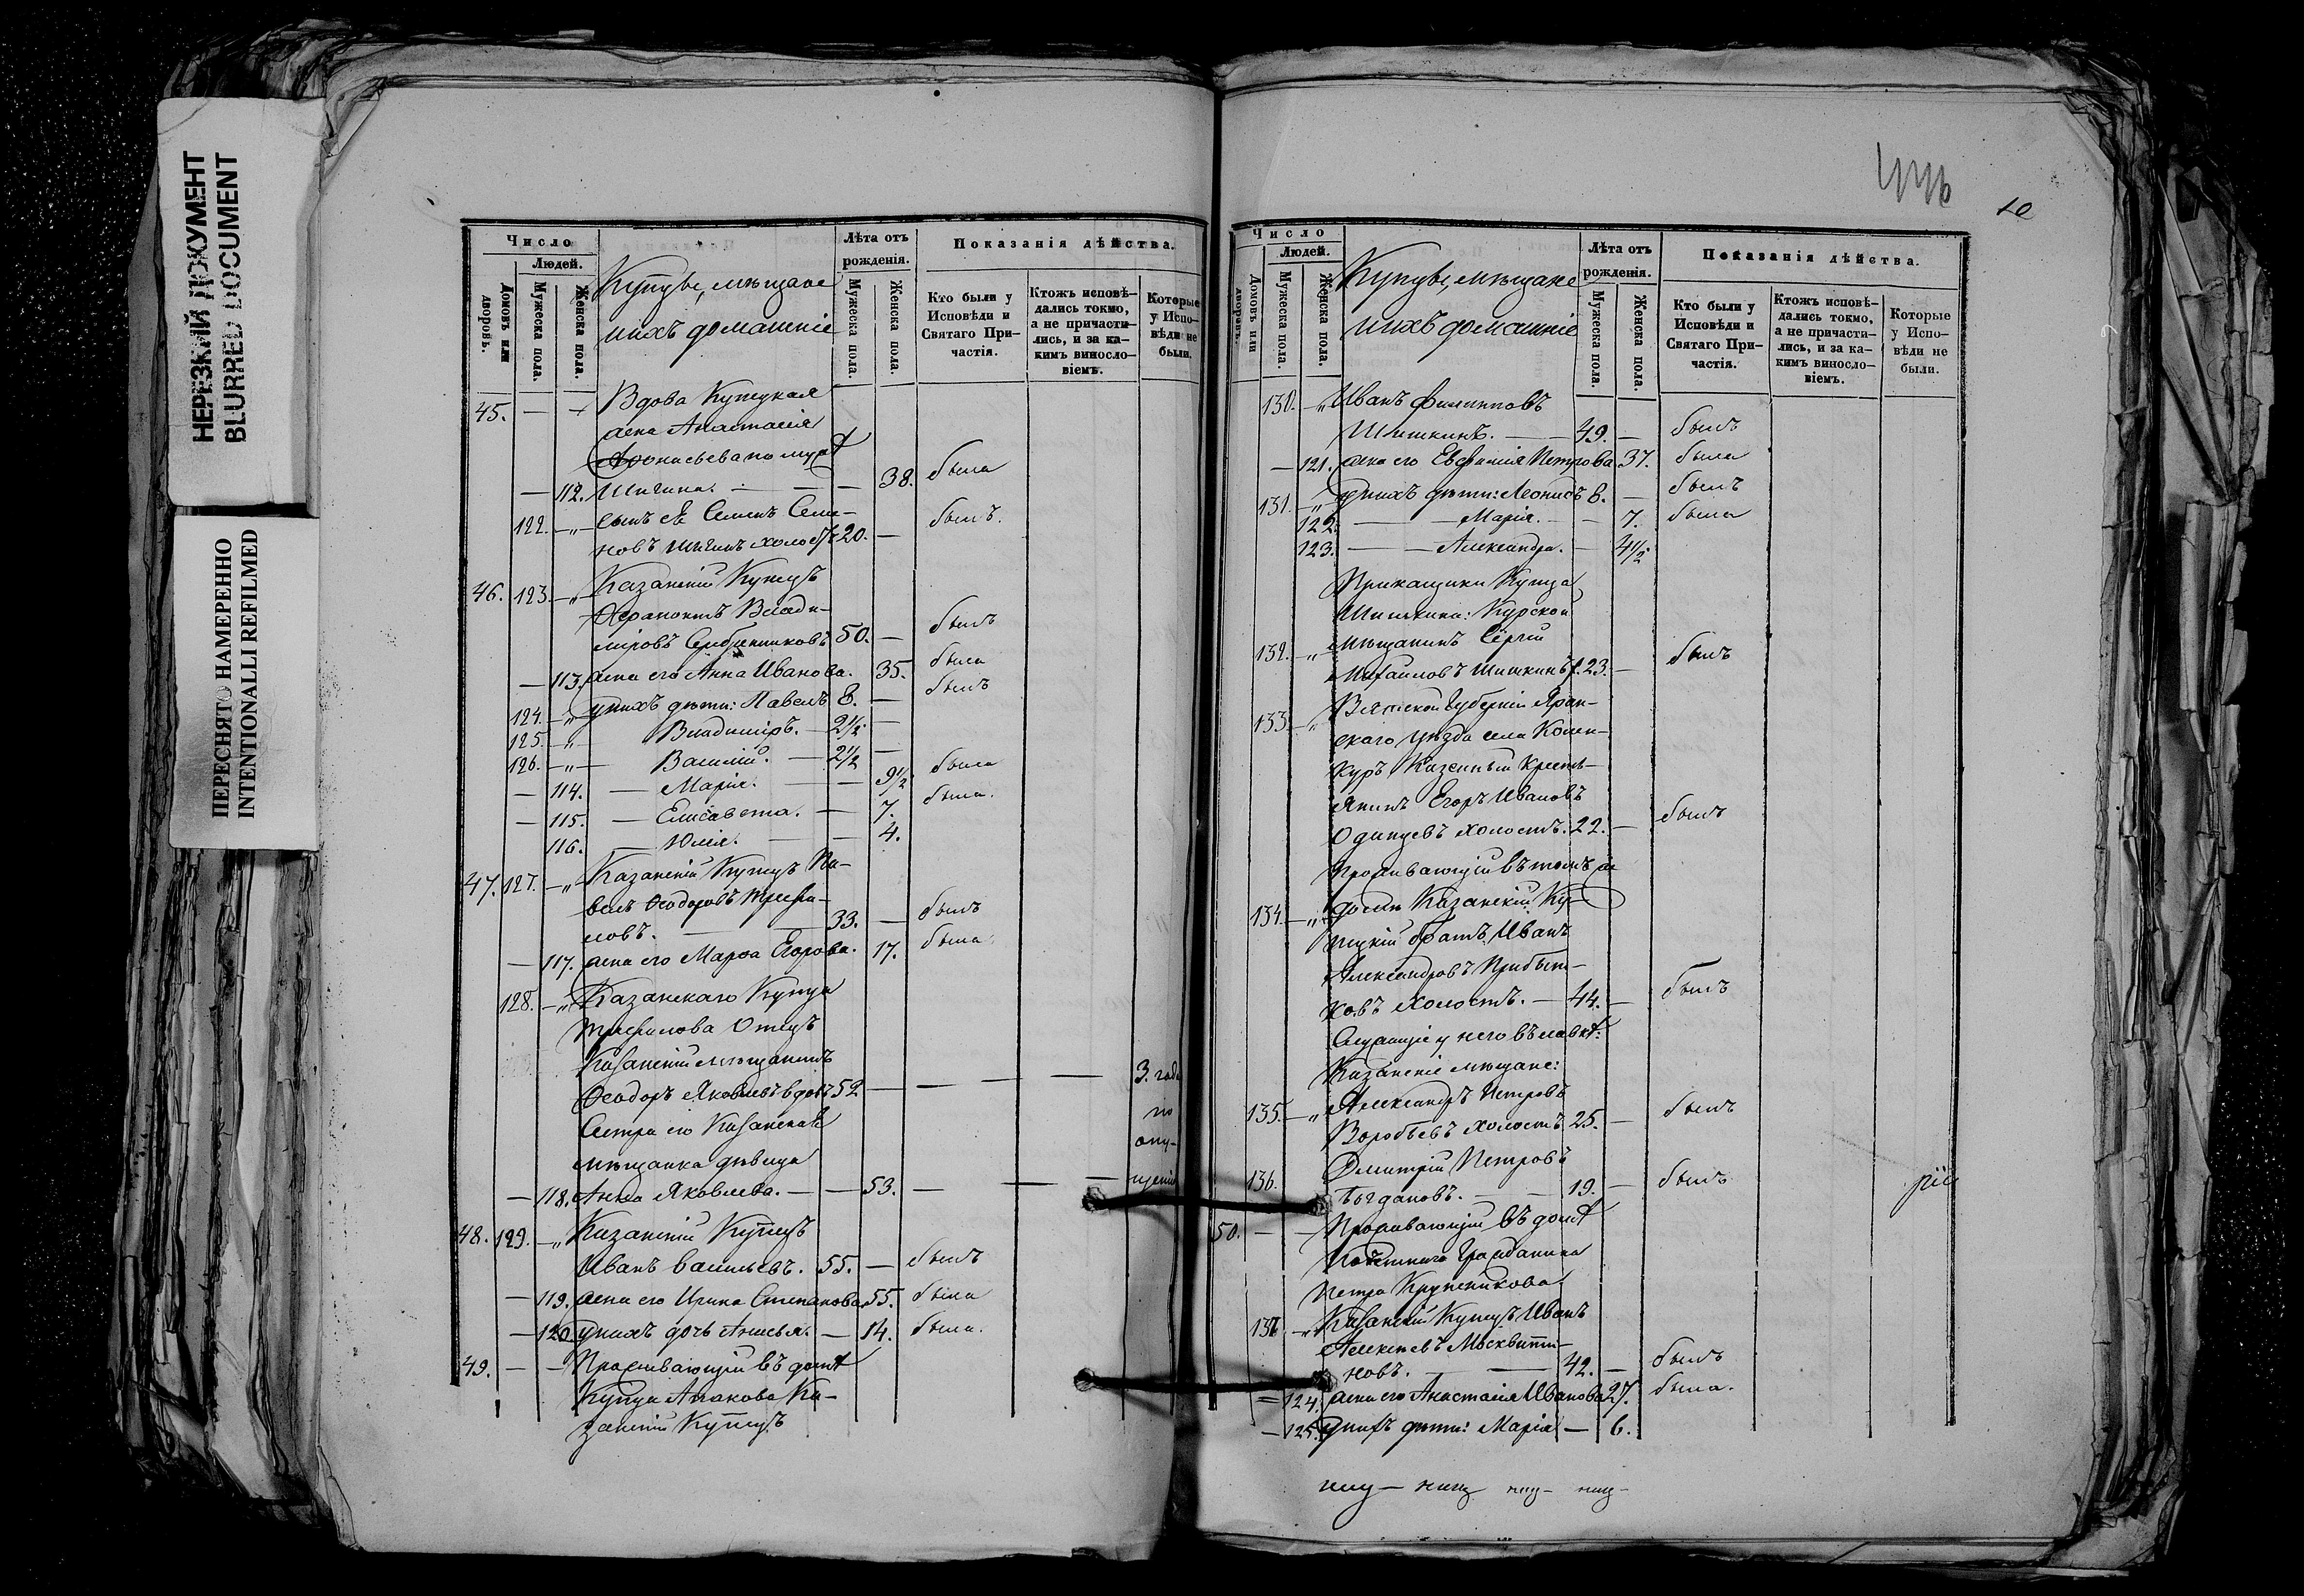 НЕРЕЗКИЙ ДОКУМЕНТ
BLURRED DOCUMENT
ПЕРЕСНЯТО НАМЕРЕННО
INTENTIONALLI REFILMED
Число
Людей.
Домовъ или дворовъ.
Мужеска пола.
Женска пола.
Купцы, мѣщане
и ихъ домашніе
Лѣта отъ
рожденія.
Мужеска пола.
Женска пола.
Показанія дѣйства.
Кто были у
Исповѣди и
Святаго При-
частія.
Ктожъ исповѣ-
дались токмо,
а не причасти-
лись, и за ка-
кимъ винсло-
віемъ.
Которые
у Испо-
вѣди не
были.
45. — Вдова Купецкая
жена Анастасія
по мужѣ
— 112. Шигина. — — 38. была
122. — „ сынъ ея Семенъ Семе-
новъ Шигинъ холостъ 20. — былъ.
46. 123. — „ Казанскій Купецъ
Ферапонтъ Влади-
міровъ Серебрениковъ 50. — былъ
— 113. жена его Анна Иванова. 35. была
124. — „ у нихъ дѣти: Павелъ 8. — былъ
125. — „ — Владиміръ. — 2½ —
126. — „ — Василій. — 2½ —
— 114. — Марія. — — 9½ была
— 115. — Елисавета. — 7. была.
116. — Юлія. — — 4.
47. 127. — „ Казанскій Купецъ Па-
велъ Ѳеодоровъ Трифи-
ловъ. — — 33. — былъ
— 117. жена его Марѳа Егорова. 17. была
128. — „ Казанскаго Купца
Трифилова Отецъ
Казанскій мѣщанинъ
Ѳеодоръ Яковлевъ вдовъ 52 — — — — 3. года
Сестра его Казанская по
мѣщанка дѣвица опу-
— 118. Анна Яковлева. — — 53. — — — щенію
48. 129. — „ Казанскій Купецъ
Иванъ Васильевъ. 55. — былъ
— 119. жена его Ирина Степанова. 55. была
— 120 у нихъ дочь Анисья. — 14. была.
49. — — Проживающій въ домѣ
Купца Ка-
занскій Купецъ
10
Число
Людей.
Домовъ или дворовъ.
Мужеска пола.
Женска пола.
Купцы, мѣщане
и ихъ домашніе
Лѣта отъ
рожденія.
Мужеска пола.
Женска пола.
Показанія дѣйства.
Кто были у
Исповѣди и
Святаго При-
частія.
Ктожъ исповѣ-
дались токмо,
а не причасти-
лись, и за ка-
кимъ винсло-
віемъ.
Которые
у Испо-
вѣди не
были.
130. — „ Иванъ Филипповъ
Шишкинъ. — — 49. — былъ
— 121. жена его Евфимія Петрова 37. была
131. — „ у нихъ дѣти: Леонидъ 8. — былъ
122. — — Марія. — — 7. была
123. — — Александра. — 4½
Прикащики Купца
Шишкина: Курской
132. — „ мѣщанинъ Сергій
Михайловъ Шишкинъ 23. — былъ
133 — „ Вятской Губерніи Яран-
скаго уѣзда села
Казенный Кресть-
янинъ Егоръ Ивановъ
Одинцевъ холостъ. 22. — былъ
Проживающій въ томъ же
134. — „ домѣ Казанскій Ку-
пецкій братъ Иванъ
Александровъ Прибыт-
ковъ холостъ. — 44. — былъ
Служащіе у него въ лавкѣ:
Казанскіе мѣщане:
135. — „ Александръ Петровъ
Воробьевъ холостъ 25. — былъ
136. Дмитрій Петровъ
Богдановъ. — — 19. — былъ
50. — — Проживающій въ домѣ
Почетнаго Гражданина
Петра Крупеникова
137. — „ Казанскій Купецъ Иванъ
Алексѣевъ Москвити-
новъ. — 42. — былъ
— 124. жена его Анастасія Иванова 27. была.
— 125. у нихъ дѣти: Марія — 6.